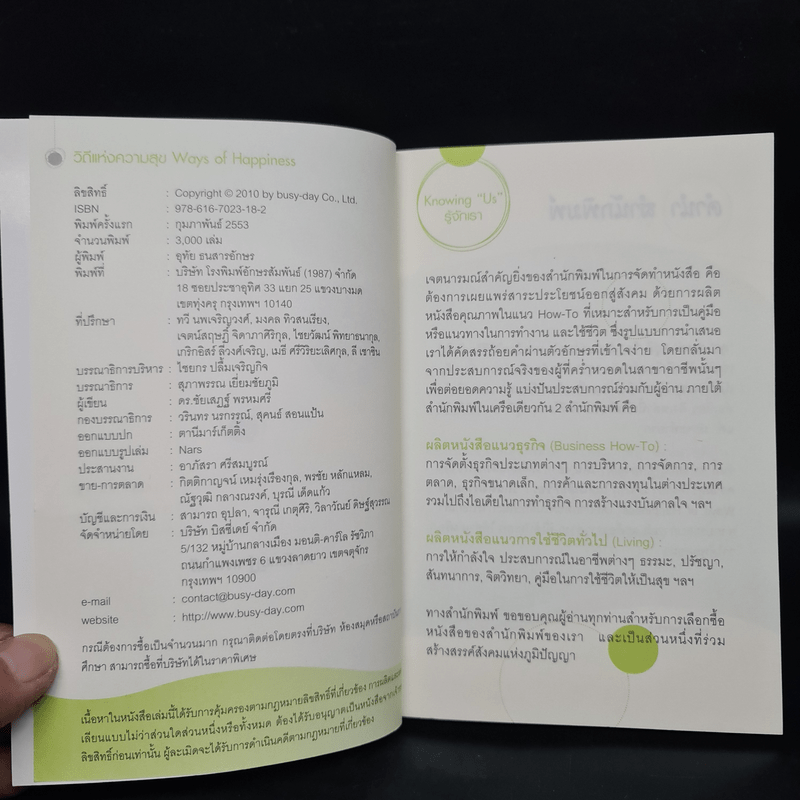 วิถีแห่งความสุข Ways of Happiness
ลิขสิทธิ์ : Copyright © 2010 by busy-day Co., Ltd.
ISBN : 978-616-7023-18-2
พิมพ์ครั้งแรก : กุมภาพันธ์ 2553
จำนวนพิมพ์ : 3,000 เล่ม
ผู้พิมพ์ : อุทัย ธนสารอักษร
พิมพ์ที่ : บริษัท โรงพิมพ์อักษรสัมพันธ์ (1987) จำกัด
18 ซอยประชาอุทิศ 33 แยก 25 แขวงบางมด
เขตทุ่งครุ กรุงเทพฯ 10140
ที่ปรึกษา : ทวี นพเจริญวงศ์, มงคล ทิวสนเรียง,
เจตน์สฤษฎิ์ จิดาภาศิริกุล, ไชยวัฒน์ พิทยาธนากุล,
เกริกอิสร์ ลีวงศ์เจริญ, เมธี ศรีวิริยะเลิศกุล, ลี เชาชิน
บรรณาธิการบริหาร : ไชยกร ปลื้มเจริญกิจ
บรรณาธิการ : สุภาพรรณ เยี่ยมชัยภูมิ
ผู้เขียน : ดร.ชัยเสฏฐ์ พรหมศรี
กองบรรณาธิการ : วรินทร นรกรรณ์, สุคนธ์ สอนแป้น
ออกแบบปก : ตานีมาร์เก็ตติ้ง
ออกแบบรูปเล่ม : Nars
ประสานงาน : อาภัสรา ศรีสมบูรณ์
ขาย-การตลาด : กิตติกาญจน์ เหมรุ่งเรืองกุล, พรชัย หลักแหลม,
ณัฐวุฒิ กลางณรงค์, บุรณี เด็ดแก้ว
บัญชีและการเงิน : สามารถ อุปลา, จารุณี เกตุศิริ, วิลาวัณย์ ดิษฐ์สุวรรณ
จัดจำหน่ายโดย : บริษัท บิสซี่เดย์ จำกัด
5/132 หมู่บ้านกลางเมือง มอนติ-คาร์โล รัชวิภา
ถนนกำแพงเพชร 6 แขวงลาดยาว เขตจตุจักร
กรุงเทพฯ 10900
e-mail : contact@busy-day.com
website : http://www.busy-day.com
กรณีต้องการซื้อเป็นจำนวนมาก กรุณาติดต่อโดยตรงที่บริษัท ห้องสมุดหรือสถาบันการ
ศึกษา สามารถซื้อที่บริษัทได้ในราคาพิเศษ
เนื้อหาในหนังสือเล่มนี้ได้รับการคุ้มครองตามกฎหมายลิขสิทธิ์ที่เกี่ยวข้อง การผลิตและลอก
เลียนแบบไม่ว่าส่วนใดส่วนหนึ่งหรือทั้งหมด ต้องได้รับอนุญาตเป็นหนังสือจากเจ้าของ
ลิขสิทธิ์ก่อนเท่านั้น ผู้ละเมิดจะได้รับการดำเนินคดีตามกฎหมายที่เกี่ยวข้อง
Knowing "Us"
รู้จักเรา
เจตนารมณ์สำคัญยิ่งของสำนักพิมพ์ในการจัดทำหนังสือ คือ
ต้องการเผยแพร่สาระประโยชน์ออกสู่สังคม ด้วยการผลิต
หนังสือคุณภาพในแนว How-To ที่เหมาะสำหรับการเป็นคู่มือ
หรือแนวทางในการทำงาน และใช้ชีวิต ซึ่งรูปแบบการนำเสนอ
เราได้คัดสรรถ้อยคำผ่านตัวอักษรที่เข้าใจง่าย โดยกลั่นมา
จากประสบการณ์จริงของผู้ที่คร่ำหวอดในสาขาอาชีพนั้นๆ
เพื่อต่อยอดความรู้ แบ่งปันประสบการณ์ร่วมกับผู้อ่าน ภายใต้
สำนักพิมพ์ในเครือเดียวกัน 2 สำนักพิมพ์ คือ
ผลิตหนังสือแนวธุรกิจ (Business How-To) :
การจัดตั้งธุรกิจประเภทต่างๆ การบริหาร, การจัดการ, การ
ตลาด, ธุรกิจขนาดเล็ก, การค้าและการลงทุนในต่างประเทศ
รวมไปถึงไอเดียในการทำธุรกิจ การสร้างแรงบันดาลใจ ฯลฯ
ผลิตหนังสือแนวการใช้ชีวิตทั่วไป (Living) :
การให้กำลังใจ ประสบการณ์ในอาชีพต่างๆ ธรรมะ, ปรัชญา,
สันทนาการ, จิตวิทยา, คู่มือในการใช้ชีวิตให้เป็นสุข ฯลฯ
ทางสำนักพิมพ์ ขอขอบคุณผู้อ่านทุกท่านสำหรับการเลือกซื้อ
หนังสือของสำนักพิมพ์ของเรา และเป็นส่วนหนึ่งที่ร่วม
สร้างสรรค์สังคมแห่งภูมิปัญญา